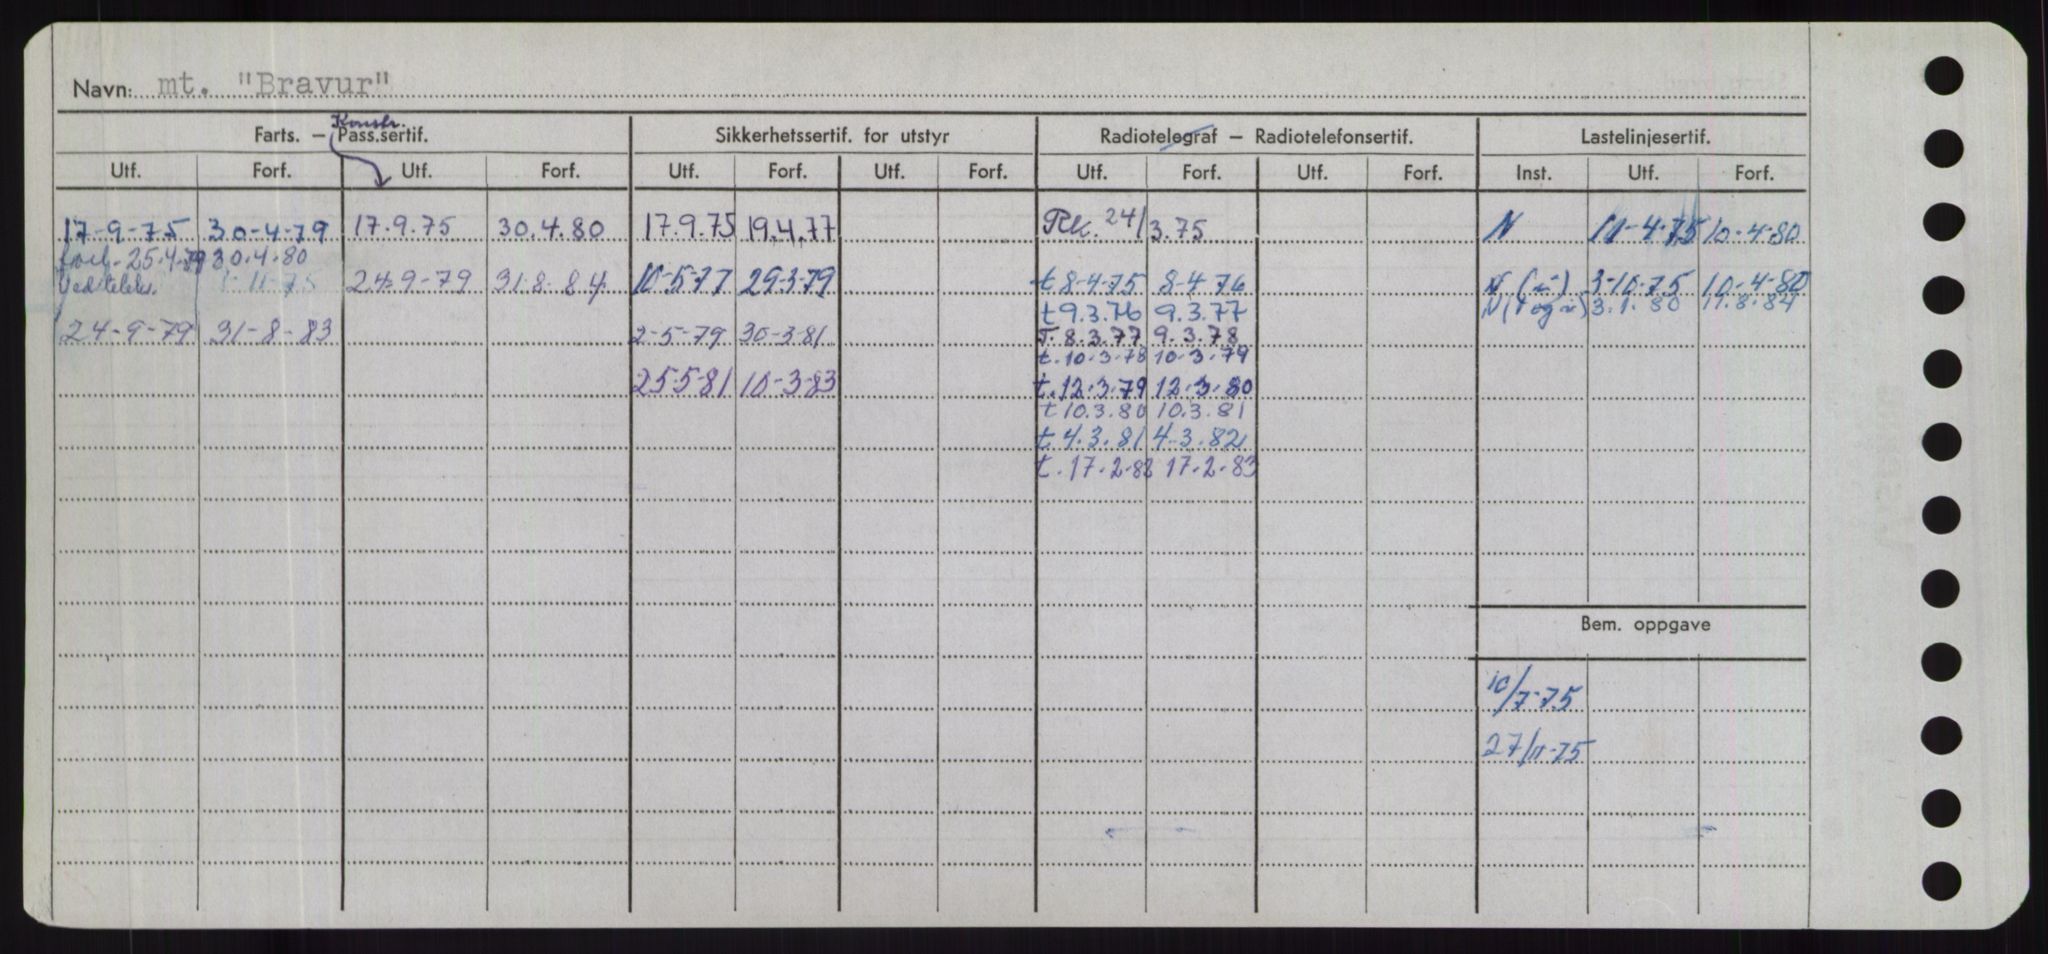 Navn: mt. "Bravur"
Farts. — Pass.sertif. Konstr. Sikkerhetssertif. for utstyr Radiotelegraf — Radiotelefonsertif. Lastelinjesertif.
Utf. Forf. Utf. Forf. Utf. Forf. Utf. Forf. Utf. Forf. Utf. Forf. Inst. Utf. Forf.
17-9-75 30-4-79 17.9.75 30.4.80 17.9.75 19.4.77 24/3.75 N 11-4-75 10-4-80
forl. 25.4.79 30.4.80
1-11-75 24-9-79 31-8-84 10-5-77 29-3-79 t.8-4-75 8-4-76 N 3-10-75 10-4-80
t 9.3.76 9.3.77 3.1.80
24-9-79 31-8-83 2-5-79 30-3-81 T. 8.3.77 9.3.78
t. 10-3-78 10-3-79
25-5-81 10-3-83 t. 12.3.79 12.3.80
t 10.3.80 10.3.81
t. 4.3.81 4-3.82
t. 17.2.82 17.2.83
Bem. oppgave
10/7-75
27/11-75